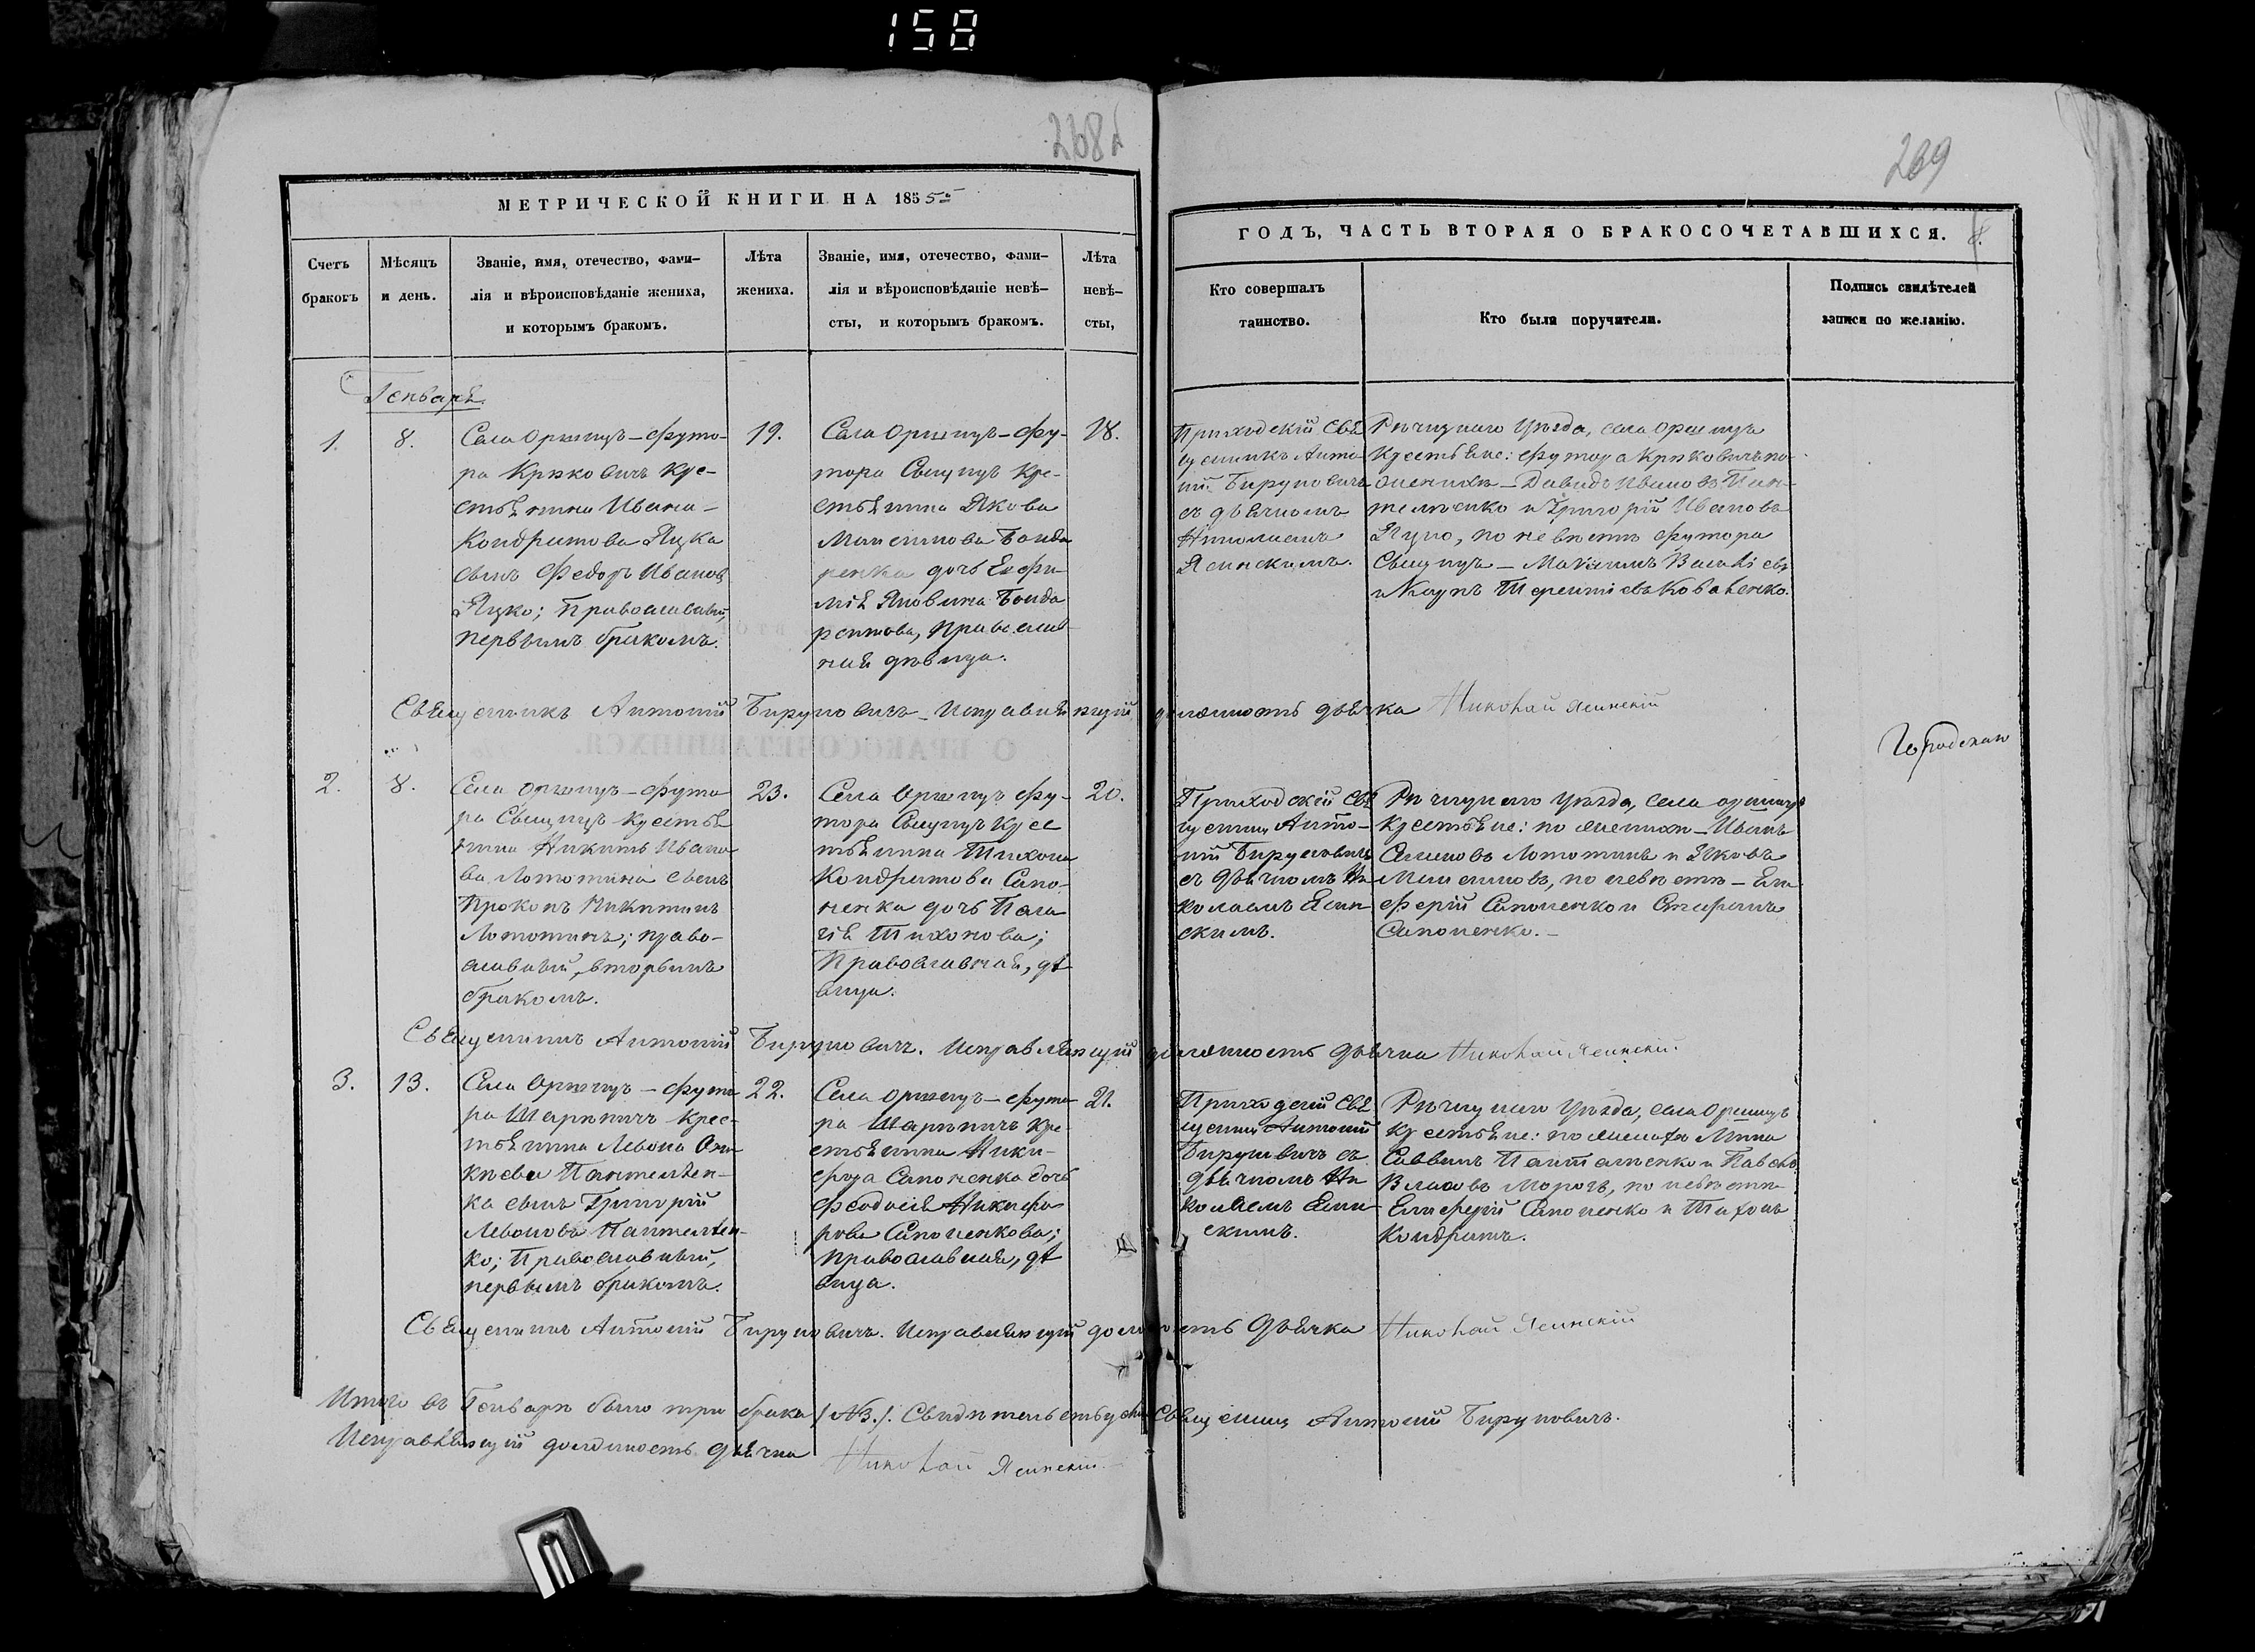 158
268
269
МЕТРИЧЕСКОЙ КНИГИ НА 1855
ГОДЪ, ЧАСТЬ ВТОРАЯ О БРАКОСОЧЕТАВШИХСЯ.
Счетъ
браковъ
Мѣсяцъ
и день.
Званіе, имя, отечество, фами-
лія и вѣроисповѣданіе жениха,
и которымъ бракомъ.
Лѣта
жениха.
Званіе, имя, отечество, фами-
лія и вѣроисповѣданіе невѣ-
сты, и которымъ бракомъ.
Лѣта
невѣ-
сты,
Кто совершалъ
таинство.
Кто были поручители.
Подпись свидѣтелей
записи по желанію.
Генварь.
1.
8.
Села футо-
ра Крюковичъ кре-
стьянина Ивана
Кондратова Яцка
сынъ Федоръ Ивановъ
Яцко; православный,
первымъ бракомъ.
19.
Села фу-
тора кре-
стьянина Якова
Бонда
ренка дочь Евфи
мія Бонда
ренкова, православ-
ная дѣвица.
18.
Приходскій свя
щенникъ Анто-
ній Бируковичъ
съ дьячкомъ
Николаемъ
Ясинскимъ.
Рѣчицкаго уѣзда, села
крестьяне: футора Крюковичъ по
женихѣ — Давидъ Ивановъ Пан-
телѣенко и Григорій Ивановъ
Яцко, по невѣстѣ футора
Максимъ
и Карпъ Терентіевъ Коваленко.
Священникъ Антоній Бируковичъ Исправляющій должность дьячка Николай Ясинскій
2.
8.
Села футо
ра крестья
нина Никиты Ивано
ва Лотошина сынъ
Прокопъ Никитинъ
Лотошинъ; право-
славный, вторымъ
бракомъ.
23.
Села фу-
тора крес
тьянина Тихона
Кондратова Сапо-
ненка дочь Пела
гія Тихонова;
православная, дѣ
вица.
20.
Приходскій свя
щенникъ Анто-
ній Бируковичъ
съ дьячкомъ Ни
колаемъ Ясин
скимъ.
Рѣчицкаго уѣзда, села
крестьяне: по женихѣ — Иванъ
и Яковъ
по невѣстѣ — Ели
ферій Сапоненко и Стефанъ
Сапоненко. —
Священникъ Антоній Бируковичъ. Исправляющій должность дьячка Николай Ясинскій.
3.
13.
Села футо
ра крес-
тьянина Левона
Пантелѣен-
ка сынъ Григорій
Левоновъ Пантелѣен-
ко; православный,
первымъ бракомъ.
22.
Села футо
ра кре
стьянина Ники-
фора Сапоненка дочь
Феодосія Никифо
рова Сапоненкова;
православная, дѣ
вица.
21.
Приходскій свя
щенникъ Антоній
Бируковичъ съ
дьячкомъ Ни
колаемъ Ясин
скимъ.
Рѣчицкаго уѣзда, села
крестьяне: по женихѣ
Саввинъ Пантеленко и Павелъ
Власовъ Морозъ, по невѣстѣ
Елиферій Сапоненко и Тихонъ
Кондратъ.
Священникъ Антоній Бируковичъ. Исправляющій должность дьячка Николай Ясинскій
Итого въ Генварѣ было три брака (№3.). Свидѣтельствуемъ Священникъ Антоній Бируковичъ.
Исправляющій должность дьячка Николай Ясинскій.